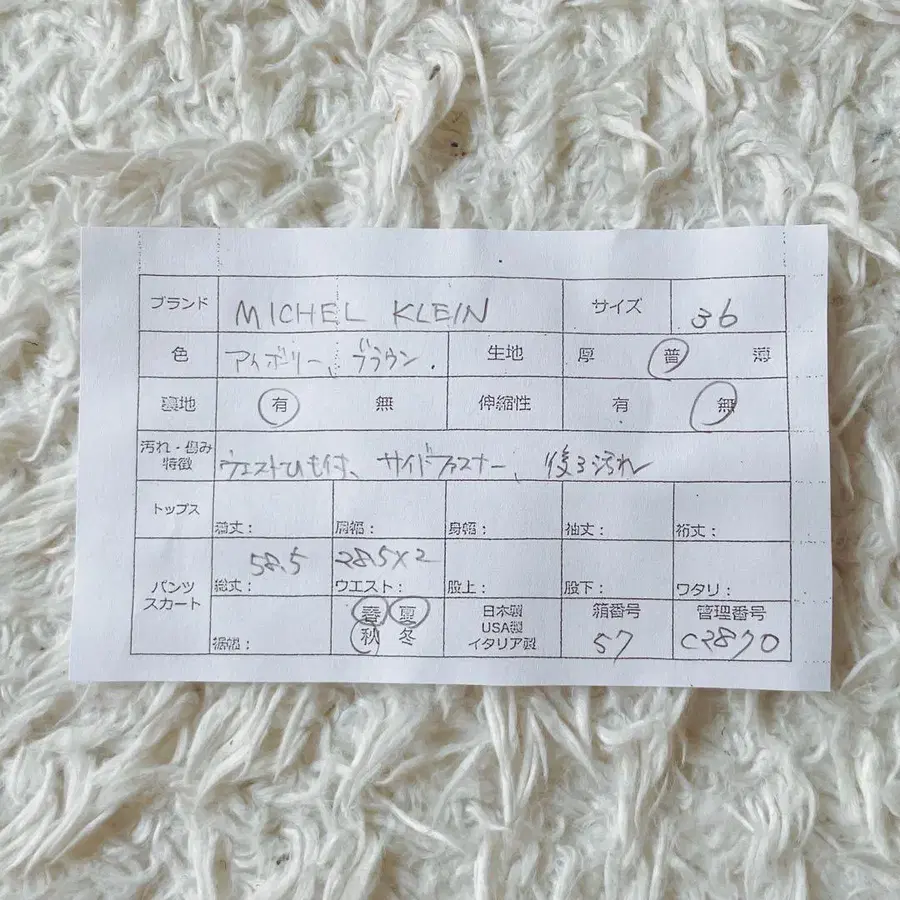 ブランド MICHEL KLEIN サイズ 36
色 アイボリー、ブラウン. 生地 厚 普 薄
裏地 有 無 伸縮性 有 無
汚れ・傷み
特徴 ウエストひも付、サイドファスナー、後ろ汚れ
トップス 着丈: 肩幅: 身幅: 袖丈: 裄丈:
パンツ
スカート 58.5 28.5×2
総丈: ウエスト: 股上: 股下: ワタリ:
裾幅: 春 夏 秋 冬 日本製 USA製 イタリア製 箱番号 57 管理番号 C2870